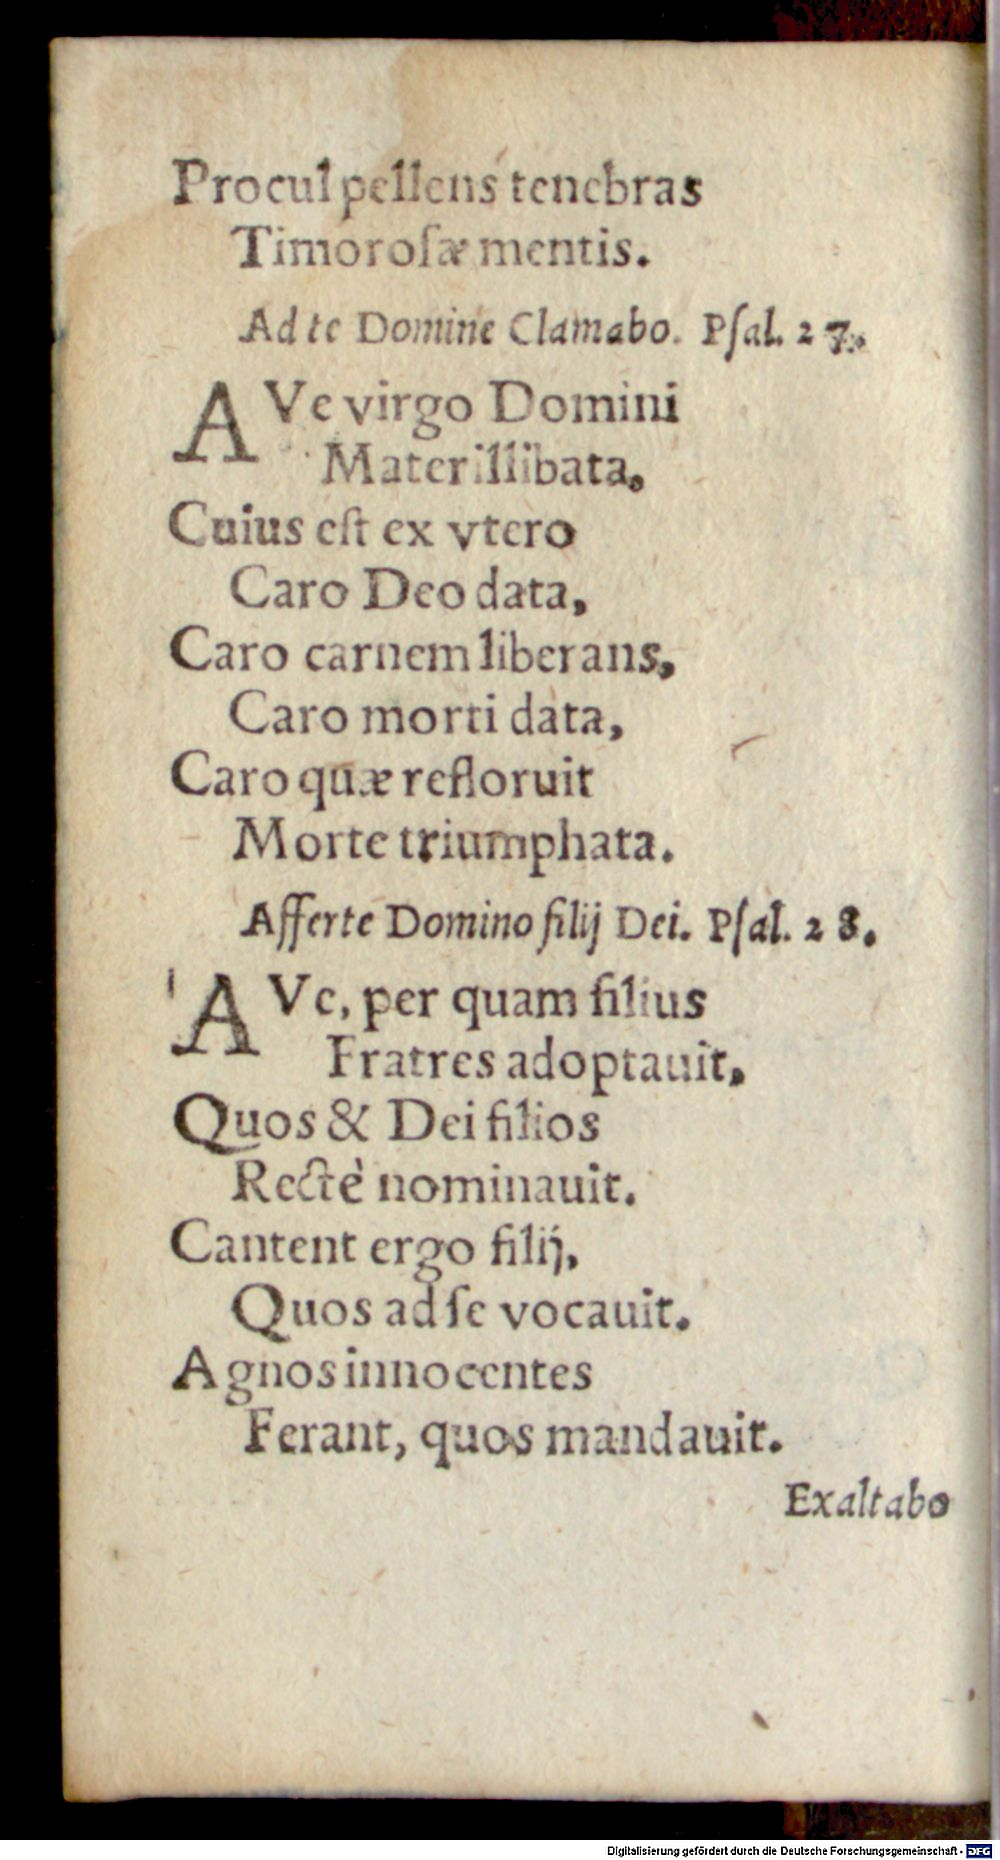 Procul pellens tenebras
Timoroſæ mentis.
Ad te Domine Clamabo. Pſal. 27.
AVe virgo Domini
Mater illibata,
Cuius eſt ex vtero
Caro Deo data,
Caro carnem liberans,
Caro morti data,
Caro quæ refloruit
Morte triumphata.
Afferte Domino filij Dei. Pſal. 28.
AVe, per quam filius
Fratres adoptauit,
Quos & Dei filios
Rectè nominauit.
Cantent ergo filij,
Quos ad ſe vocauit.
Agnos innocentes
Ferant, quos mandauit.
Exaltabo
Digitalisierung gefördert durch die Deutsche Forschungsgemeinschaft - DFG